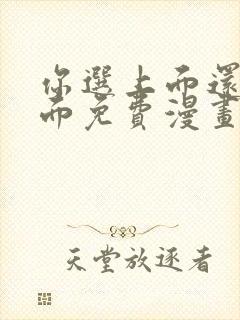 你選上面還
面免費漫畫
天堂放逐者